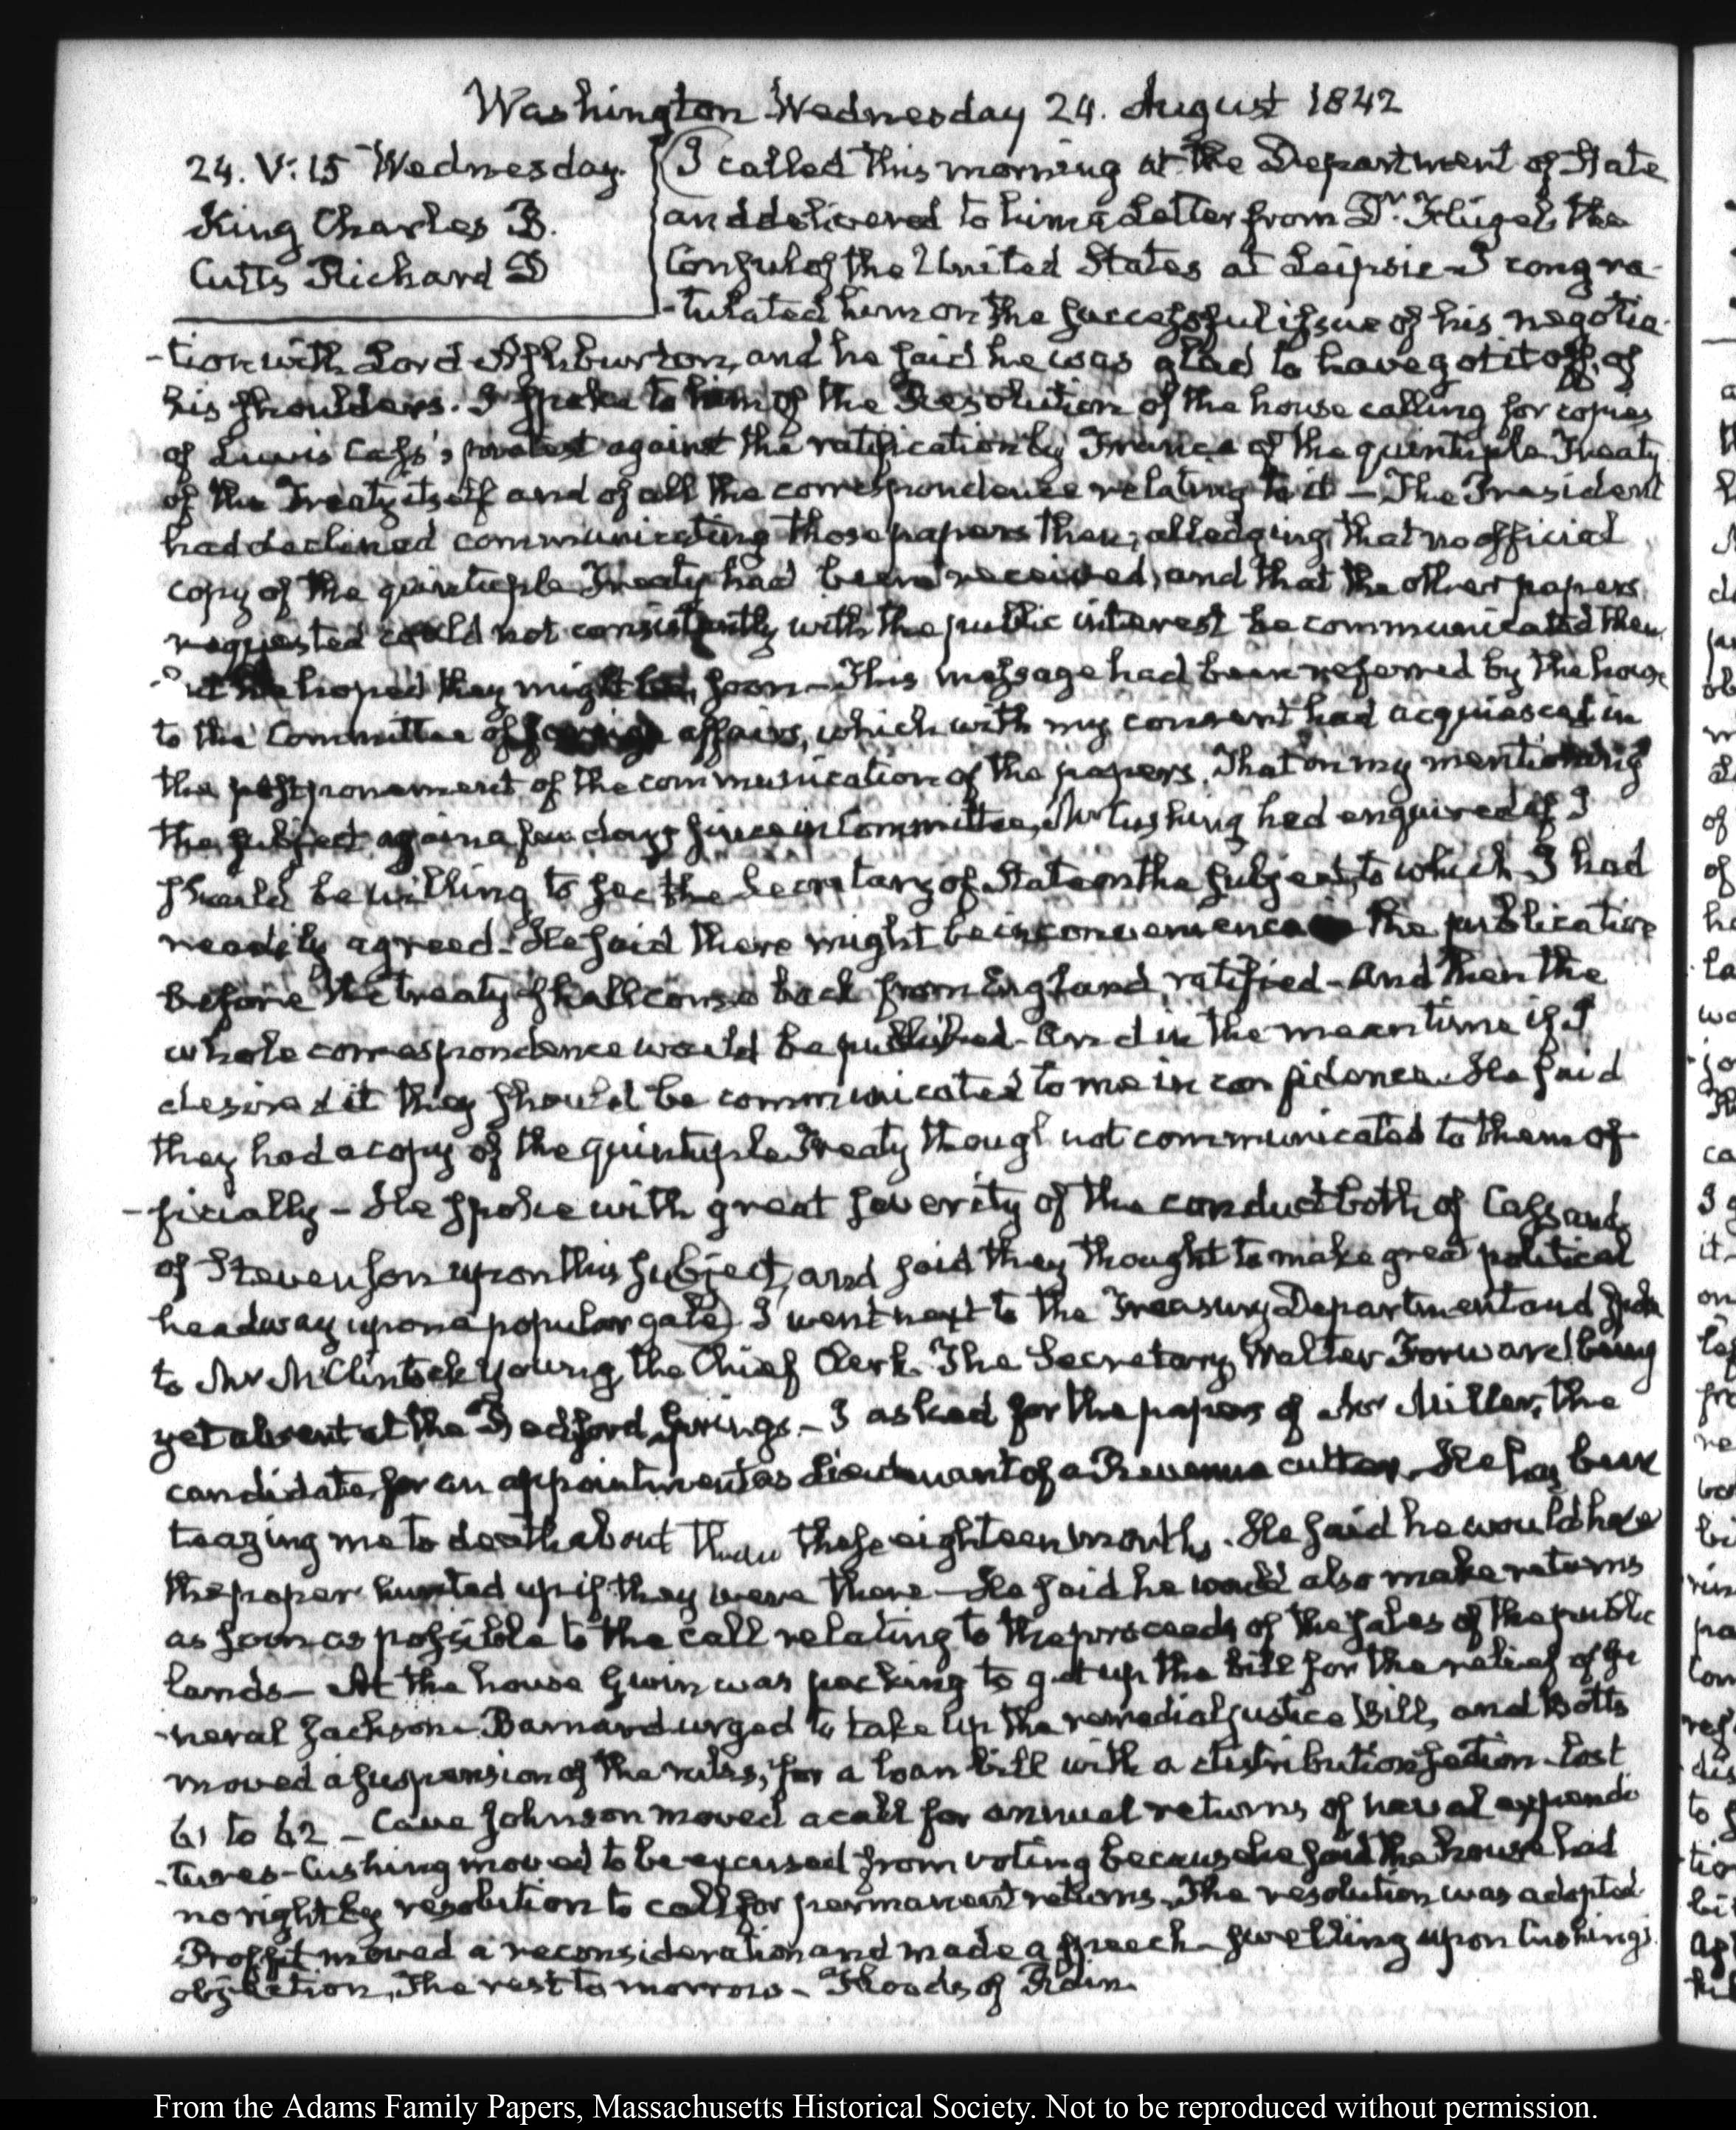 Washington Wednesday 24. August 1842
24. V:15 Wednesday.
King Charles B.
Cutts Richard D
I called this morning at the Department of State
and delivered to him a Letter from Dr. Flügel, the
Consul of the United States at Leipsic – I congra-
-tulated him on the successful issue of his negotia-
-tion with Lord Ashburton, and he said he was glad to have got it off, of
his shoulders. I spoke to him of the Resolution of the house calling for copies
of Lewis Cass's protest against the ratification by France of the quintuple Treaty
of the Treaty itself and of all the correspondence relating to it – The President
had declined communicating those papers then, alledging that no official
copy of the quintuple Treaty had been received, and that the other papers
requested could not consistently with the public interest be communicated then,
but he hoped they might be, soon – This message had been referred by the house
to the Committee of foreign affairs, which with my consent had acquiesced in
the postponement of the communication of the papers. That on my mentioning
the subject again a few days since in Committee, Mr Cushing had enquired if I
should be willing to see the Secretary of State on the subject, to which I had
readily agreed – He said there might be inconvenience the publication
before the treaty shall come back from England, ratified – And then the
whole correspondence would be published – And in the mean time if I
desired it they should be communicated to me in confidence. He said
they had a copy of the quintuple Treaty though not communicated to them of-
-ficially – He spoke with great severity of the conduct both of Cass and
of Stevenson upon this subject, and said they thought to make great political
headway upon a popular gale) I went next to the Treasury Department and spoke
to Mr McClintock Young, the Chief Clerk. The Secretary, Walter Forward being
yet absent at the Bedford Springs – I asked for the papers of Mr Miller, the
candidate for an appointment as Lieutenant of a Revenue cutter. He has been
teazing me to death about them these eighteen months. He said he would have
the paper hunted up if they were there – He said he would also make returns
as soon as possible to the call relating to the proceeds of the sales of the public
lands – At the house Gwin was packing to get up the bill for the relief of Ge
-neral Jackson – Barnard urged to take up the remedial justice Bill, and Botts
moved a suspension of the rules, for a loan bill with a distribution section – lost
61 to 62 – Cave Johnson moved a call for annual returns of naval expendi
-tures – Cushing moved to be excused from voting because he said the house had
no right by resolution to call for permanent returns – The resolution was adopted
Proffit moved a reconsideration and made a speech – swelling upon Cushing's
objection, The rest to morrow – Floods of Rain.
From the Adams Family Papers, Massachusetts Historical Society. Not to be reproduced without permission.